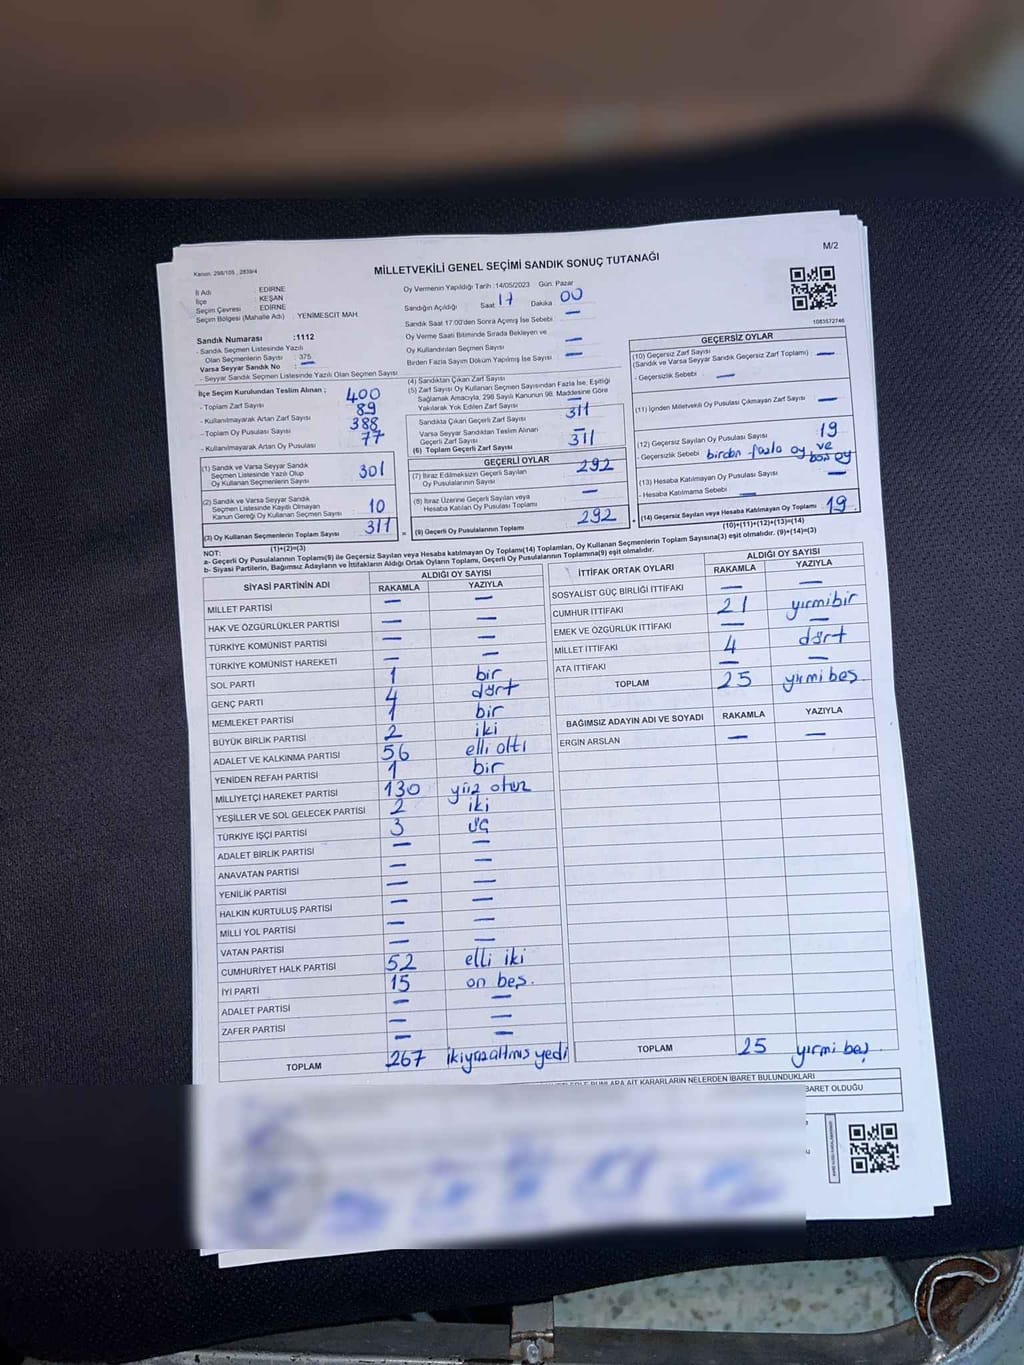 Kanun: 298/105 , 2839/4
MİLLETVEKİLİ GENEL SEÇİMİ SANDIK SONUÇ TUTANAĞI
M/2
İl Adı : EDİRNE
İlçe : KEŞAN
Seçim Çevresi : EDİRNE
Seçim Bölgesi (Mahalle Adı) : YENİMESCİT MAH.
Oy Vermenin Yapıldığı Tarih :14/05/2023 Gün: Pazar
Sandığın Açıldığı Saat 17 Dakika 00
Sandık Saat 17:00'den Sonra Açılmış İse Sebebi: —
Oy Verme Saati Bitiminde Sırada Bekleyen ve
Oy Kullandırılan Seçmen Sayısı —
Birden Fazla Sayım Döküm Yapılmış İse Sayısı —
1083572746
Sandık Numarası :1112
- Sandık Seçmen Listesinde Yazılı
Olan Seçmenlerin Sayısı : 375
Varsa Seyyar Sandık No : —
- Seyyar Sandık Seçmen Listesinde Yazılı Olan Seçmen Sayısı
İlçe Seçim Kurulundan Teslim Alınan ;
- Toplam Zarf Sayısı 400
- Kullanılmayarak Artan Zarf Sayısı 89
- Toplam Oy Pusulası Sayısı 388
- Kullanılmayarak Artan Oy Pusulası 77
(1) Sandık ve Varsa Seyyar Sandık
Seçmen Listesinde Yazılı Olup
Oy Kullanan Seçmen Sayısı 301
(2) Sandık ve Varsa Seyyar Sandık
Seçmen Listesinde Kayıtlı Olmayan
Kanun Gereği Oy Kullanan Seçmen Sayısı 10
(3) Oy Kullanan Seçmenlerin Toplam Sayısı 311
(1)+(2)=(3)
(4) Sandıktan Çıkan Zarf Sayısı
(5) Zarf Sayısı Oy Kullanan Seçmen Sayısından Fazla İse, Eşitliği
Sağlamak Amacıyla, 298 Sayılı Kanunun 98. Maddesine Göre
Yakılarak Yok Edilen Zarf Sayısı —
Sandıkta Çıkan Geçerli Zarf Sayısı 311
Varsa Seyyar Sandıktan Teslim Alınan
Geçerli Zarf Sayısı —
(6) Toplam Geçerli Zarf Sayısı 311
GEÇERLİ OYLAR
(7) İtiraz Edilmeksizin Geçerli Sayılan
Oy Pusulalarının Sayısı 292
(8) İtiraz Üzerine Geçerli Sayılan veya
Hesaba Katılan Oy Pusulası Toplamı —
= (9) Geçerli Oy Pusulalarının Toplamı 292
GEÇERSİZ OYLAR
(10) Geçersiz Zarf Sayısı
(Sandık ve Varsa Seyyar Sandık Geçersiz Zarf Toplamı) —
- Geçersizlik Sebebi : —
(11) İçinden Milletvekili Oy Pusulası Çıkmayan Zarf Sayısı —
(12) Geçersiz Sayılan Oy Pusulası Sayısı 19
- Geçersizlik Sebebi birden fazla oy ve boş oy
(13) Hesaba Katılmayan Oy Pusulası Sayısı —
- Hesaba Katılmama Sebebi : —
+ (14) Geçersiz Sayılan veya Hesaba Katılmayan Oy Toplamı 19.
(10)+(11)+(12)+(13)=(14)
NOT:
a- Geçerli Oy Pusulalarının Toplamı(9) ile Geçersiz Sayılan veya Hesaba katılmayan Oy Toplamı(14) Toplamları, Oy Kullanan Seçmenlerin Toplam Sayısına(3) eşit olmalıdır. (9)+(14)=(3)
b- Siyasi Partilerin, Bağımsız Adayların ve İttifakların Aldığı Ortak Oyların Toplamı, Geçerli Oy Pusulalarının Toplamına(9) eşit olmalıdır.
SİYASİ PARTİNİN ADI ALDIĞI OY SAYISI
RAKAMLA YAZIYLA
MİLLET PARTİSİ — —
HAK VE ÖZGÜRLÜKLER PARTİSİ — —
TÜRKİYE KOMÜNİST PARTİSİ — —
TÜRKİYE KOMÜNİST HAREKETİ — —
SOL PARTİ 1 bir
GENÇ PARTİ 4 dört
MEMLEKET PARTİSİ 1 bir
BÜYÜK BİRLİK PARTİSİ 2 iki
ADALET VE KALKINMA PARTİSİ 56 elli altı
YENİDEN REFAH PARTİSİ 1 bir
MİLLİYETÇİ HAREKET PARTİSİ 130 yüz otuz
YEŞİLLER VE SOL GELECEK PARTİSİ 2 iki
TÜRKİYE İŞÇİ PARTİSİ 3 üç
ADALET BİRLİK PARTİSİ — —
ANAVATAN PARTİSİ — —
YENİLİK PARTİSİ — —
HALKIN KURTULUŞ PARTİSİ — —
MİLLİ YOL PARTİSİ — —
VATAN PARTİSİ — —
CUMHURİYET HALK PARTİSİ 52 elli iki
İYİ PARTİ 15 on beş.
ADALET PARTİSİ — —
ZAFER PARTİSİ — —
TOPLAM 267 ikiyüzaltmış yedi
İTTİFAK ORTAK OYLARI ALDIĞI OY SAYISI
RAKAMLA YAZIYLA
SOSYALİST GÜÇ BİRLİĞİ İTTİFAKI — —
CUMHUR İTTİFAKI 21 yirmibir
EMEK VE ÖZGÜRLÜK İTTİFAKI — —
MİLLET İTTİFAKI 4 dört
ATA İTTİFAKI — —
TOPLAM 25 yirmi beş
BAĞIMSIZ ADAYIN ADI VE SOYADI RAKAMLA YAZIYLA
ERGİN ARSLAN — —
TOPLAM 25 yirmi beş
BUNLARA AİT KARARLARIN NELERDEN İBARET BULUNDUKLARI
İBARET OLDUĞU